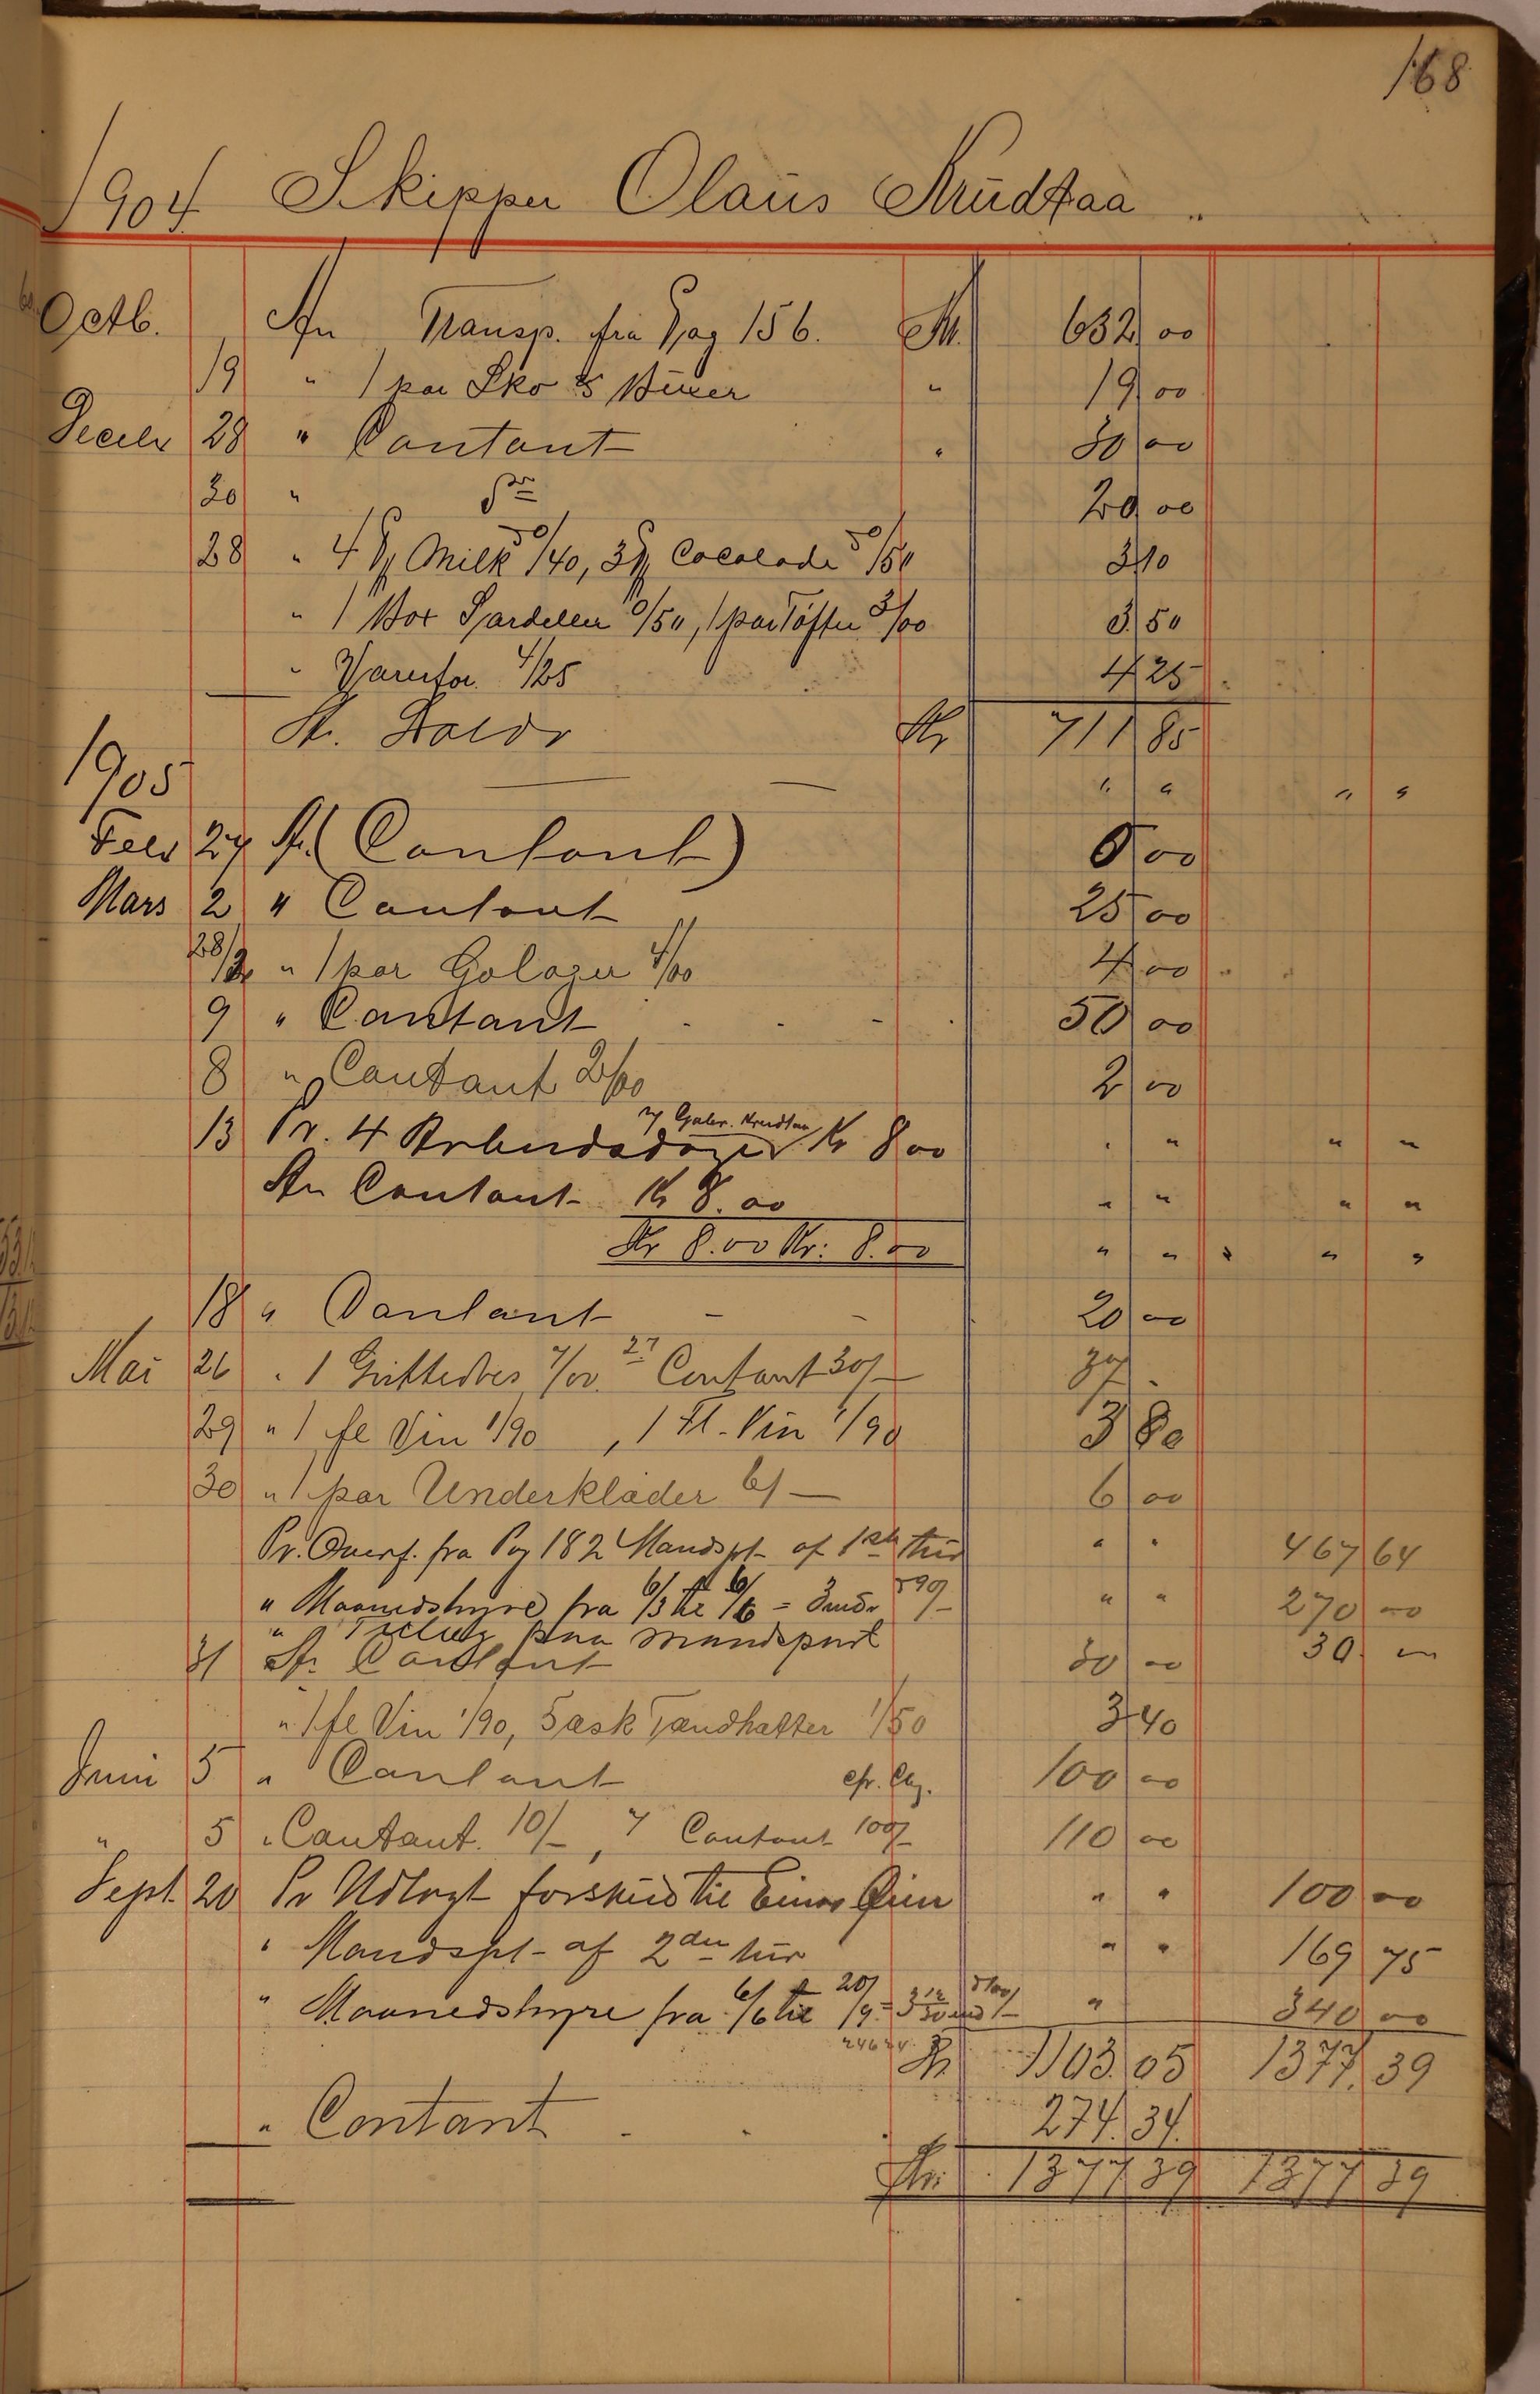 168
1904 Skipper Olaus Krudtaa
Octb. An Transp. fra Pag 156. Kr. 632 00
19 " 1 par Sko & Buxer " 19 00
Decbr 28 " Contant " 30 00
30 " Do 20 00
28 " 4 Milk 0/40, 3 Cocolade 0/50 3 10
" 1 Box Sardeller 0/50, 1 par Töfler 3/00 3 50
" Varer for 4/25 4 25
An Saldo Kr 711 85
1905 " " " "
Febr 27 An (Contant) 0 00
Mars 2 " Contant 25 00
28/2 " 1 par Galoger 4/00 4 00
9 " Contant - - - . 50 00
8 " Contant 2/00 2 00
13 Pr. 4 Arbeidsdage v/ Gabr. Krudtaa Kr 8 00 " " " "
An Contant Kr 8.00 " " " "
Kr 8.00 Kr. 8.00 " " " "
18 " Contant - - 20 00
Mai 26 " 1 7/00. 27 Contant 30/- 37 .
29 " 1 fl Vin 1/90 , 1 Fl. Vin 1/90 3 80
30 " 1 par Underklæder 6/- 6 00
Pr. Overf. fra Pag 182 Mandspt af 1ste tur " " 467 64
" Maanedshyre fra 6/3 til 6/6 = 3 mdr á 90/- " " 270 00
" Tillæg paa mandspart 30 00
31 An Contant 30 00
" 1 fl Vin 1/90, 5 æsk Tændhatter 1/50 3 40
Juni 5 " Contant 100 00
" 5 " Contant 10/-, " Contant 100/- 110 00
Sept. 20 Pr Udlagt forskud til Einar Öien " " 100 00
" Mandspt- af 2den tur " " 169 75
" Maanedshyre fra 6/6 til 20/9 = 3 12/30 md á 100/- " 340 00
Kr. 1103.05 1377.39
" Contant - - . 274.34.
Kr. 1377 39 1377 39